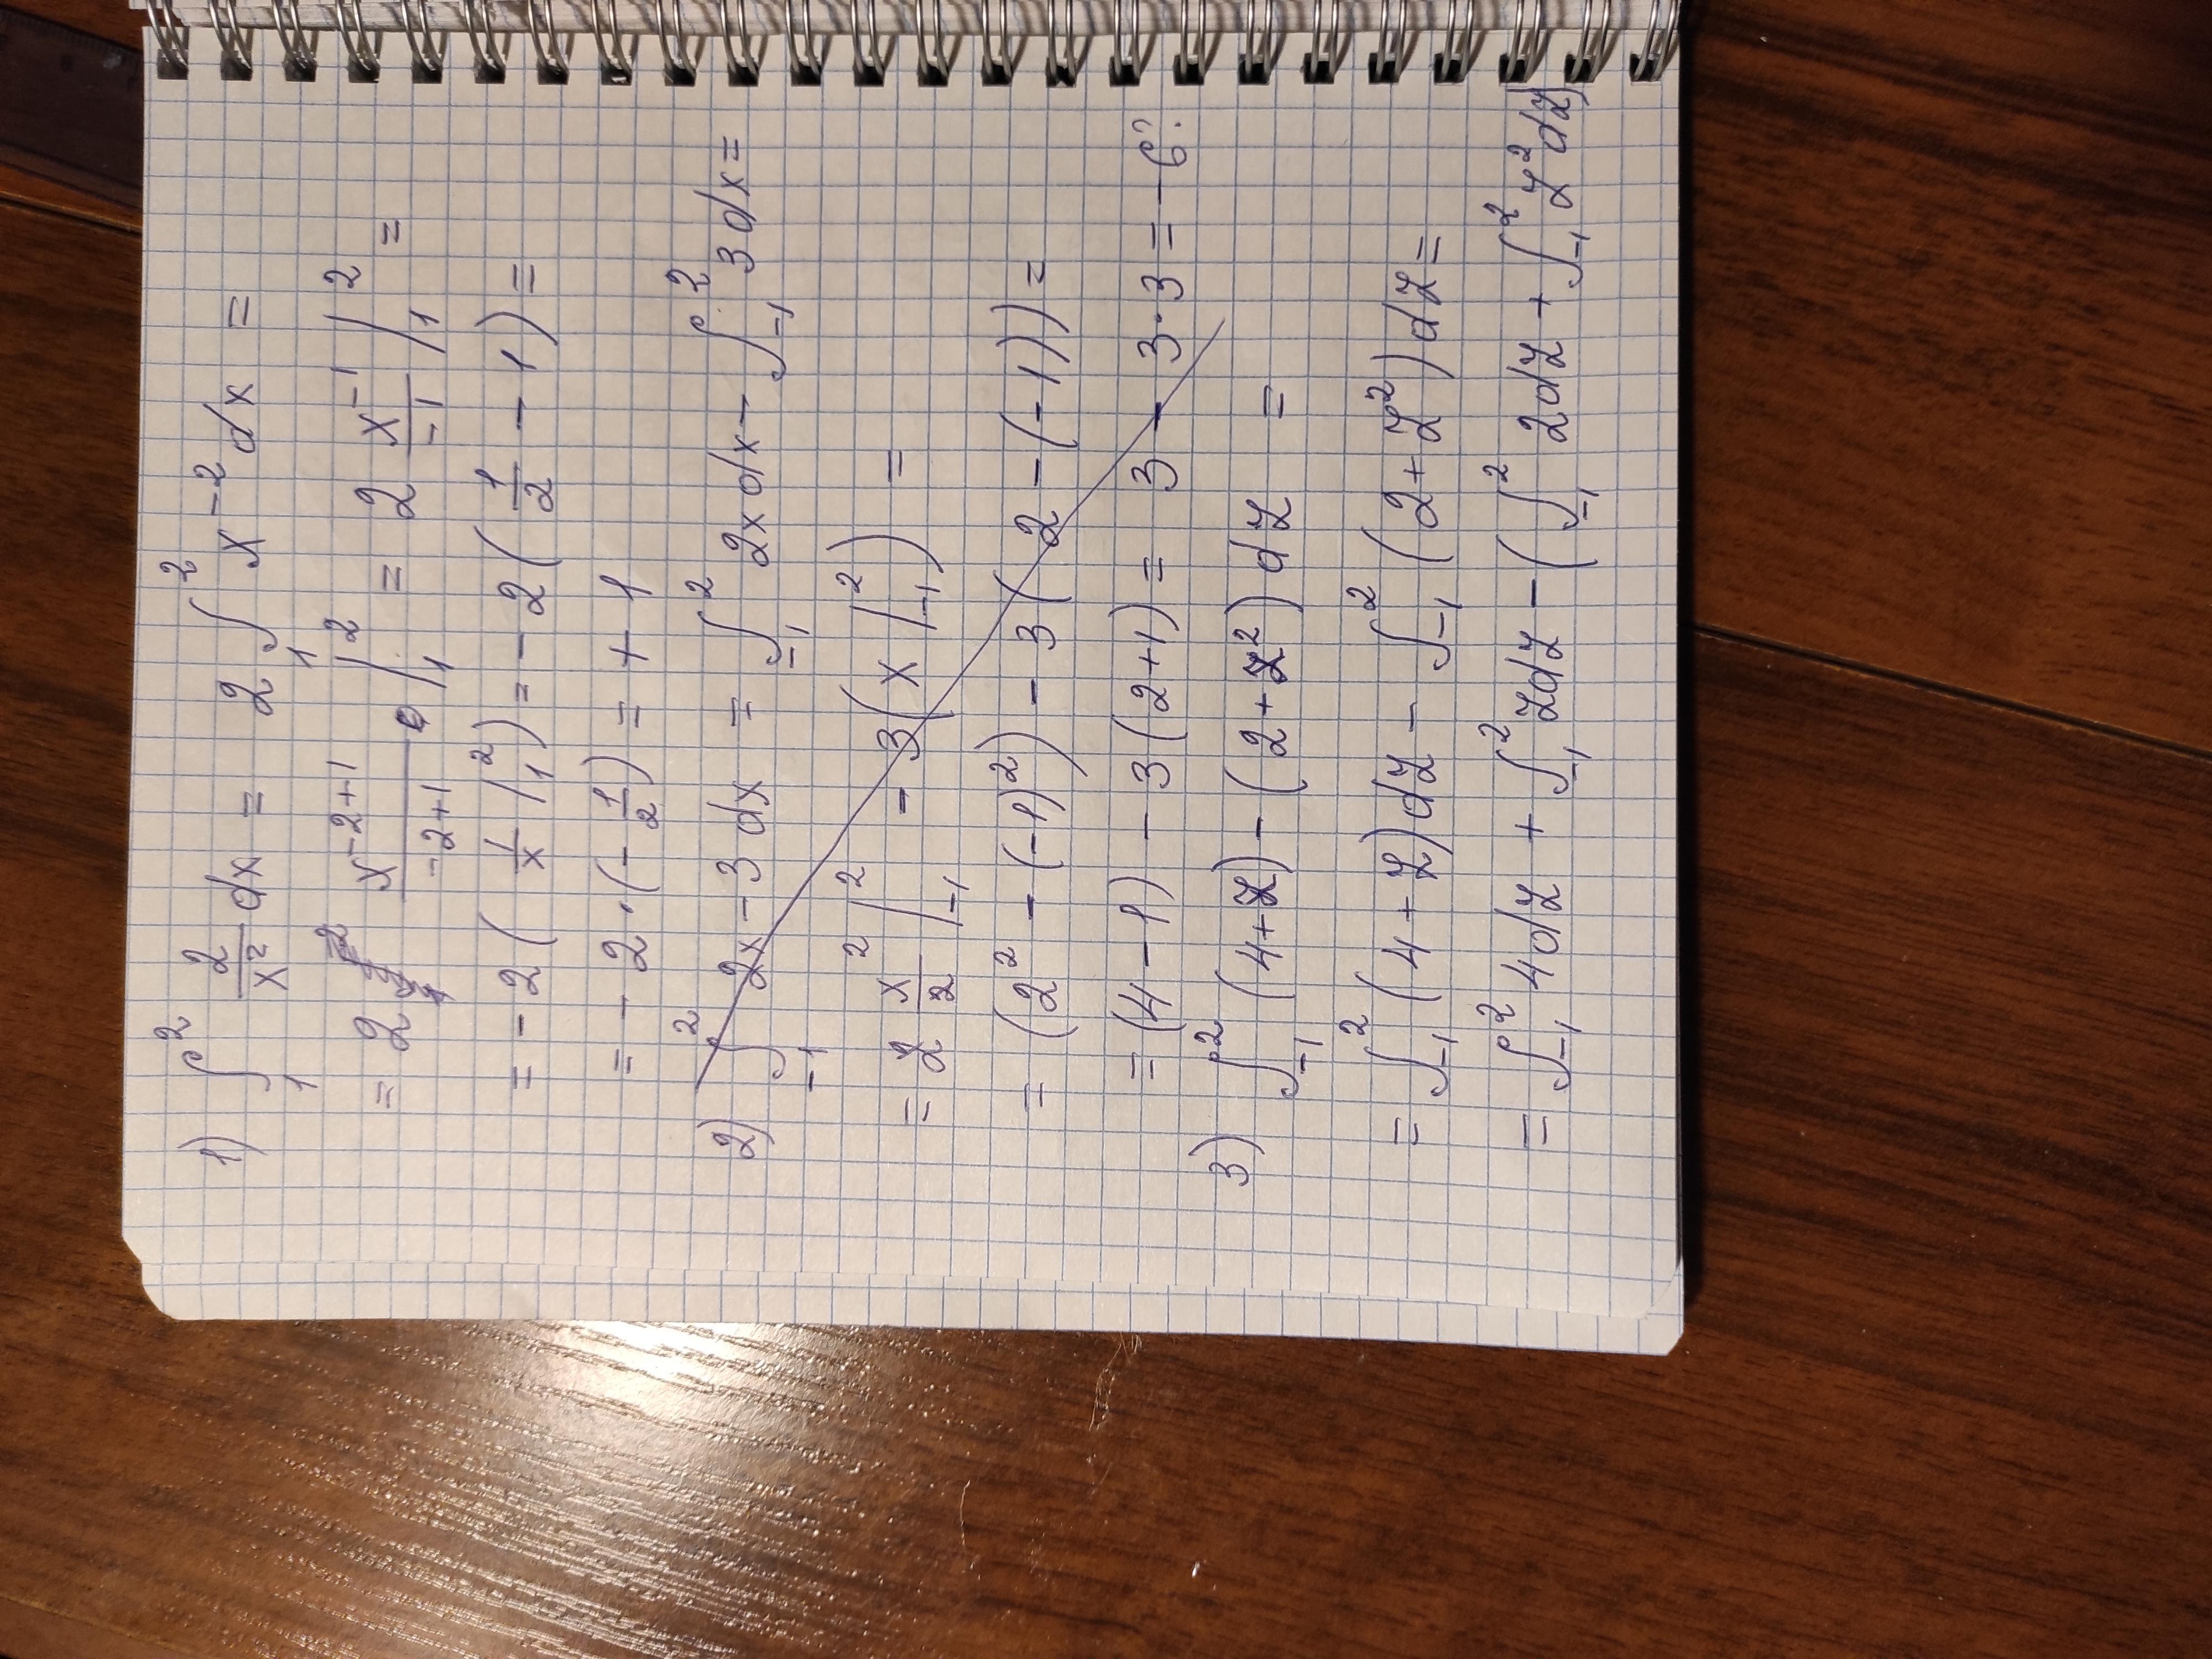 1) ∫₁² 2/x² dx = 2 ∫₁² x⁻² dx =
= 2 x⁻²⁺¹/(-2+1) |₁² = 2 x⁻¹/-1 |₁² =
= -2 ( 1/x |₁² ) = -2 ( 1/2 - 1 ) =
= -2 · ( - 1/2 ) = + 1
2) ∫₋₁² 2x - 3 dx = ∫₋₁² 2x dx - ∫₋₁² 3 dx =
= 2 x²/2 |₋₁² - 3 ( x |₋₁² ) =
= ( 2² - (-1)² ) - 3 ( 2 - (-1) ) =
= (4 - 1) - 3 (2+1) = 3 - 3·3 = -6?
3) ∫₋₁² (4+y) - (2+y²) dy =
= ∫₋₁² (4+y) dy - ∫₋₁² (2+y²) dy =
= ∫₋₁² 4 dy + ∫₋₁² y dy - ( ∫₋₁² 2 dy + ∫₋₁² y² dy )